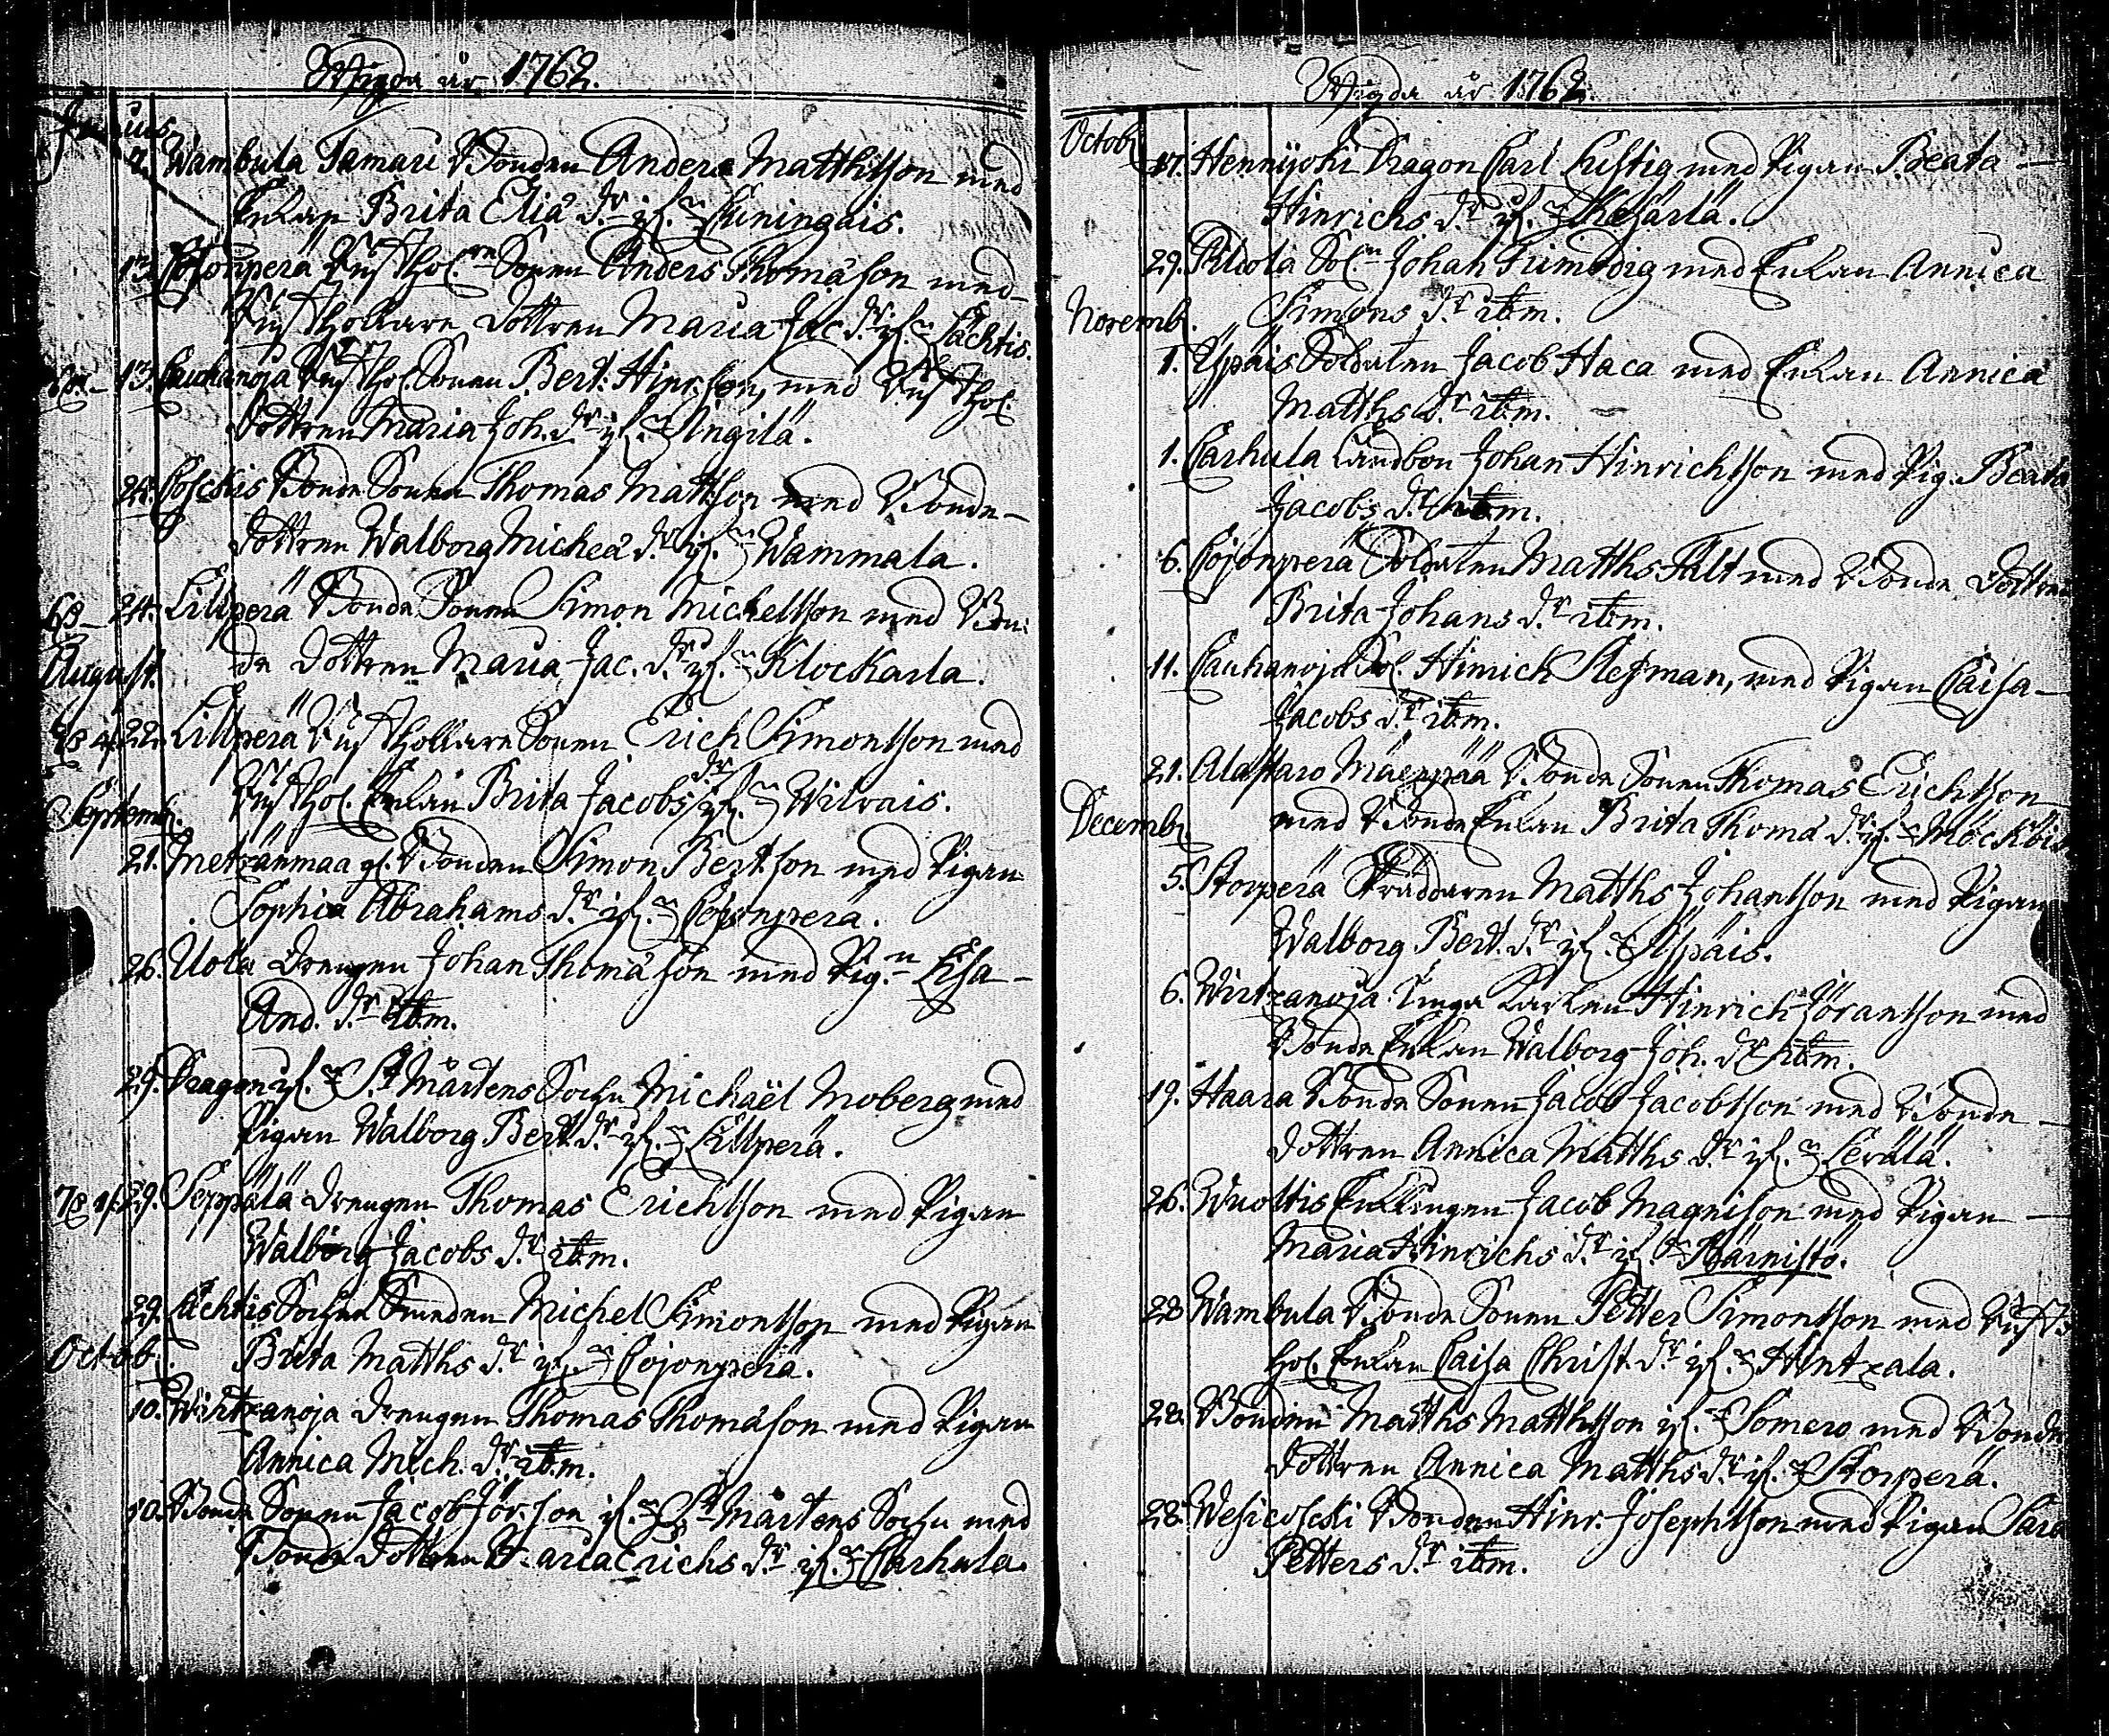 Wigda år 1762.
Junius
7. Wambula Tamari Bonden Anders Matthsson med
Enkan Brita Eliæ dr if. Cuningais.
13. Cojonperä Rusthol.rn Sonen Anders Thomæson med
Rusthollare dottren Maria Jac. dr if. Lachtis.
13. Cauhanoja Rusthol. Sonen Bert. Hinr.son, med Rusthol.
Dottren Maria Joh. dr if. Ångilä.
24. Coschis Bonde Sonen Thomas Mattsson med Bonde
dottren Walborg Micheä dr if. Wammala.
24. Lillperä Bonde Sonen Simon Michelsson med Bon:
de dottren Maria Jac. dr if. Klockarla.
August.
22. Lillperä Rusthollare Sonen Erich Simonsson med
Rusthol. Enkan Brita Jacobs dr if. Wilvais.
Septemb.
21. Metzänmaa gl. Bonden Simon Bertson med Pigan
Sophia Abrahams dr if. Cojonperä.
26. Uola drengen Johan Thomæson med Pig.n Lisa
And. dr ibm.
29. Dragon if. St Mårtens Sochn Michaël Moberg med
Pigan Walborg Bert. dr if. Lillperä.
29. Seppälä drengen Thomas Erichsson med Pigan
Walborg Jacobs dr ibm.
29. Lachtis Sochne Smeden Michel Simonsson med Pigan
Octob.
Brita Matths dr if. Cojonperä.
10. Wirtzanoja drengen Thomas Thomæson med Pigan
Annica Mich. dr ibm.
10. Bonde Sonen Jacob Jör.son if. St Mårtens Sochn med
Bonde dottren Maria Erichs dr if. Carhula.
Wigda år 1762.
Octob.
17. Hennijoki Dragon Carl Lustig med Pigan Beata
Hinrichs dr if. Kesärlä.
29. Pildola Sol.n Johan Frimodig med Enkan Annica
Simons dr ibm.
Novemb.
1. Ypäis Soldaten Jacob Haca med Enkan Annica
Matths dr ibm.
1. Carhula Landbon Johan Hinrichsson med Pig. Beata
Jacobs dr ibm.
6. Cojonperä Soldaten Matths Fält med Bonde Dottren
Brita Johans dr ibm.
11. Cauhanoja Sol. Hinrich man, med Pigan Caisa
Jacobs dr ibm.
21. Alastaro Mäenpää Bonde Sonen Thomas Erichsson
med Bonde Enkan Brita Thomæ dr if. Möckböis.
Decemb.
5. Storperä Skräddaren Matths Johansson med Pigan
Walborg Bert. dr if. Ypäis.
6. Wirtzanoja Unga Karlen Hinrich Jöransson med
Bonde Enkan Walborg Joh. dr ibm.
19. Haara Bonde Sonen Jacob Jacobsson med Bonde
dottren Annica Matths dr if. Levälä.
26. Wuoltis Enklingen Jacob Magnison med Pigan
Maria Hinrichs dr if. Kärnistö.
28 Wambula Bonde Sonen Petter Simonsson med Rust
hol. Enkan Caisa Christ. dr if. Hintzala.
28. Bonden Matths Matthsson if. Somero med Bonde
dottren Annica Matths dr if. Storperä.
28. Wesicoscki Bonden Hinr. Josephsson med Pigan Sara
Petters dr ibm.